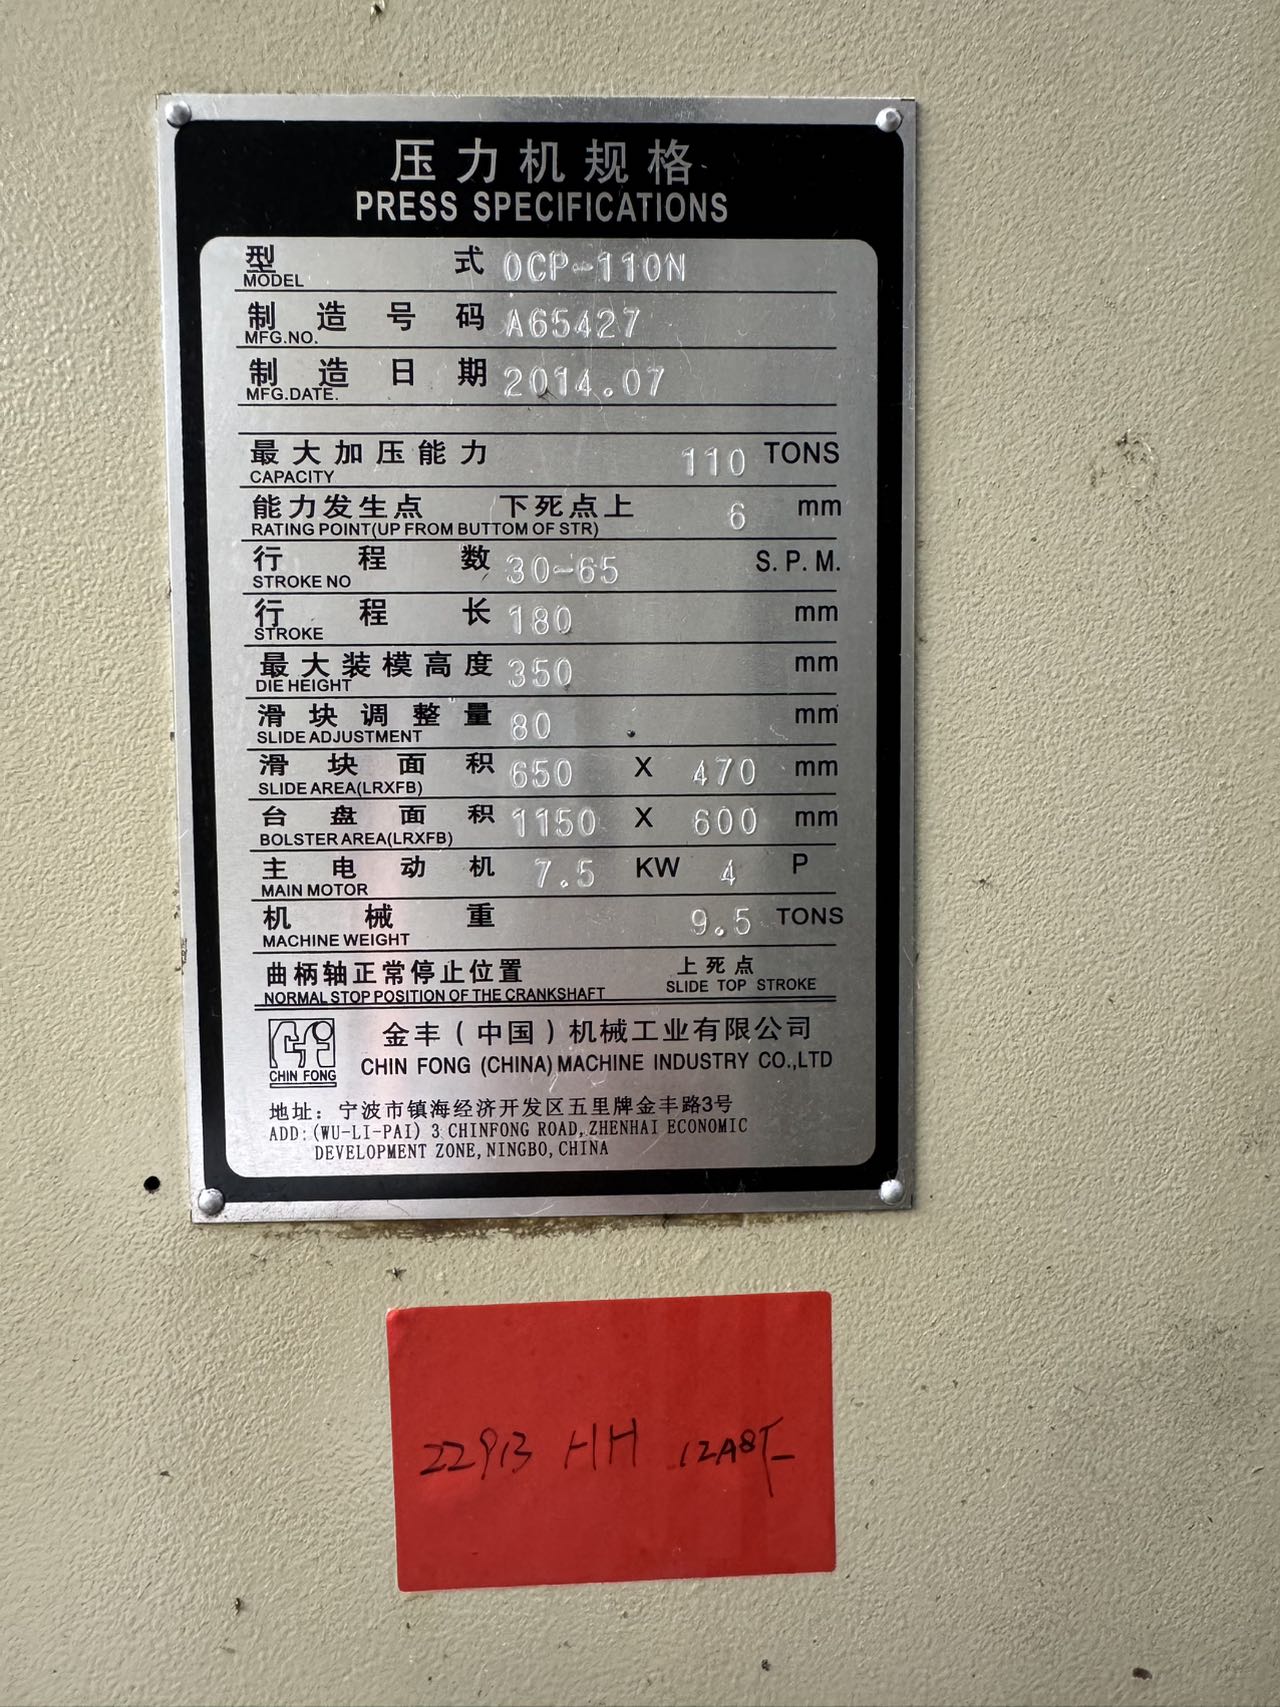 压力机规格
PRESS SPECIFICATIONS
型式 OCP-110N
MODEL
制造号码 A65427
MFG.NO.
制造日期 2014.07
MFG.DATE.
最大加压能力 110 TONS
CAPACITY
能力发生点 下死点上 6 mm
RATING POINT(UP FROM BUTTOM OF STR)
行程数 30-65 S.P.M.
STROKE NO
行程长 180 mm
STROKE
最大装模高度 350 mm
DIE HEIGHT
滑块调整量 80 mm
SLIDE ADJUSTMENT
滑块面积 650 X 470 mm
SLIDE AREA(LRXFB)
台盘面积 1150 X 600 mm
BOLSTER AREA(LRXFB)
主电动机 7.5 KW 4 P
MAIN MOTOR
机械重 9.5 TONS
MACHINE WEIGHT
曲柄轴正常停止位置 上死点
NORMAL STOP POSITION OF THE CRANKSHAFT SLIDE TOP STROKE
金丰(中国)机械工业有限公司
CHIN FONG CHIN FONG (CHINA) MACHINE INDUSTRY CO.,LTD
地址：宁波市镇海经济开发区五里牌金丰路3号
ADD:(WU-LI-PAI) 3 CHINFONG ROAD,ZHENHAI ECONOMIC
DEVELOPMENT ZONE,NINGBO,CHINA
22913 HH